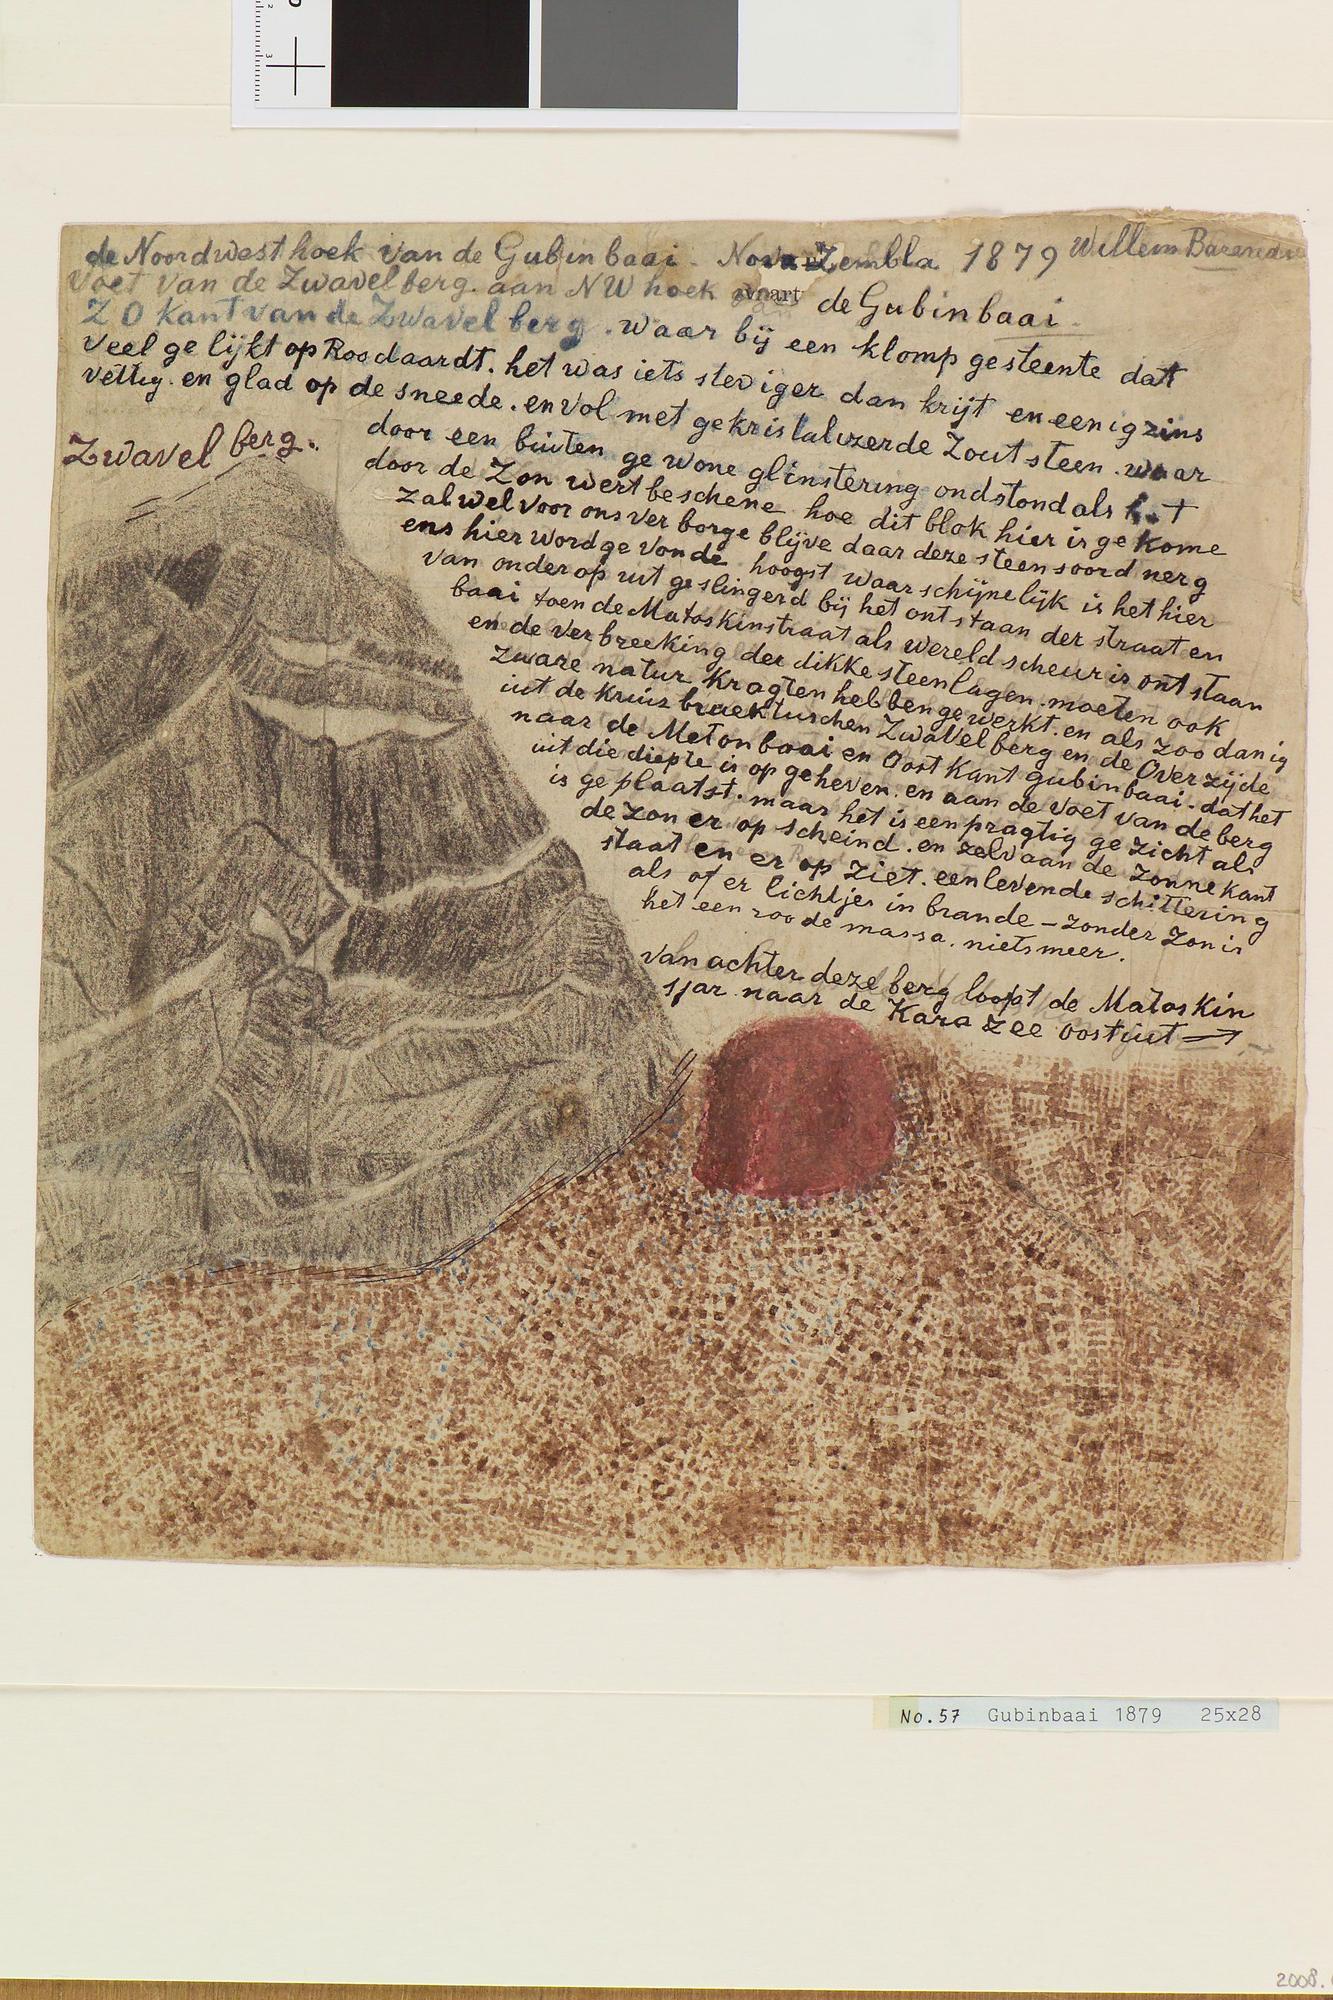 de Noordwesthoek van de Gubinbaai. Nova Zembla 1879 Willem
Voet van de Zwavelberg. aan NW hoek van de Gubinbaai.
Z O kant van de Zwavel berg. waar bij een klomp gesteente dat
veel ge lijkt op Roodaardt. het was iets steviger dan krijt en eenigzins
vettig. en glad op de sneede. en vol met gekristalizerde Zoutsteen. waar
door een buiten ge wone glinstering ondstond als het
door de Zon wert beschene hoe dit blok hier is ge kome
zal wel voor ons ver borge blijve daar deze steensoord nerg
ens hier word ge vonde hoogst waarschijnelijk is het hier
van onder op uit geslingerd bij het ontstaan der straat en
baai toen de Matoskinstraat als wereld scheur is ontstaan
en de verbreeking der dikke steenlagen. moeten ook
zware natur kragten hebben ge werkt. en als zoo danig
uit de kruis braek tuschen Zwavelberg en de Overzijde
naar de Metonbaai en Oost kant gubinbaai. dat het
uit die diepte is op geheven. en aan de voet van de berg
is ge plaatst. maar het is een pragtig ge zicht als
de zon er op scheind. en zelv aan de zonne kant
staat en er op ziet. een levende schittering
als of er lichtjes in brande – zonder zon is
het een roo de massa. niets meer.
Zwavel berg.
van achter deze berg loopt de Matoskin
sjar naar de Kara zee oostuit →
No.57 Gubinbaai 1879 25x28
2008.